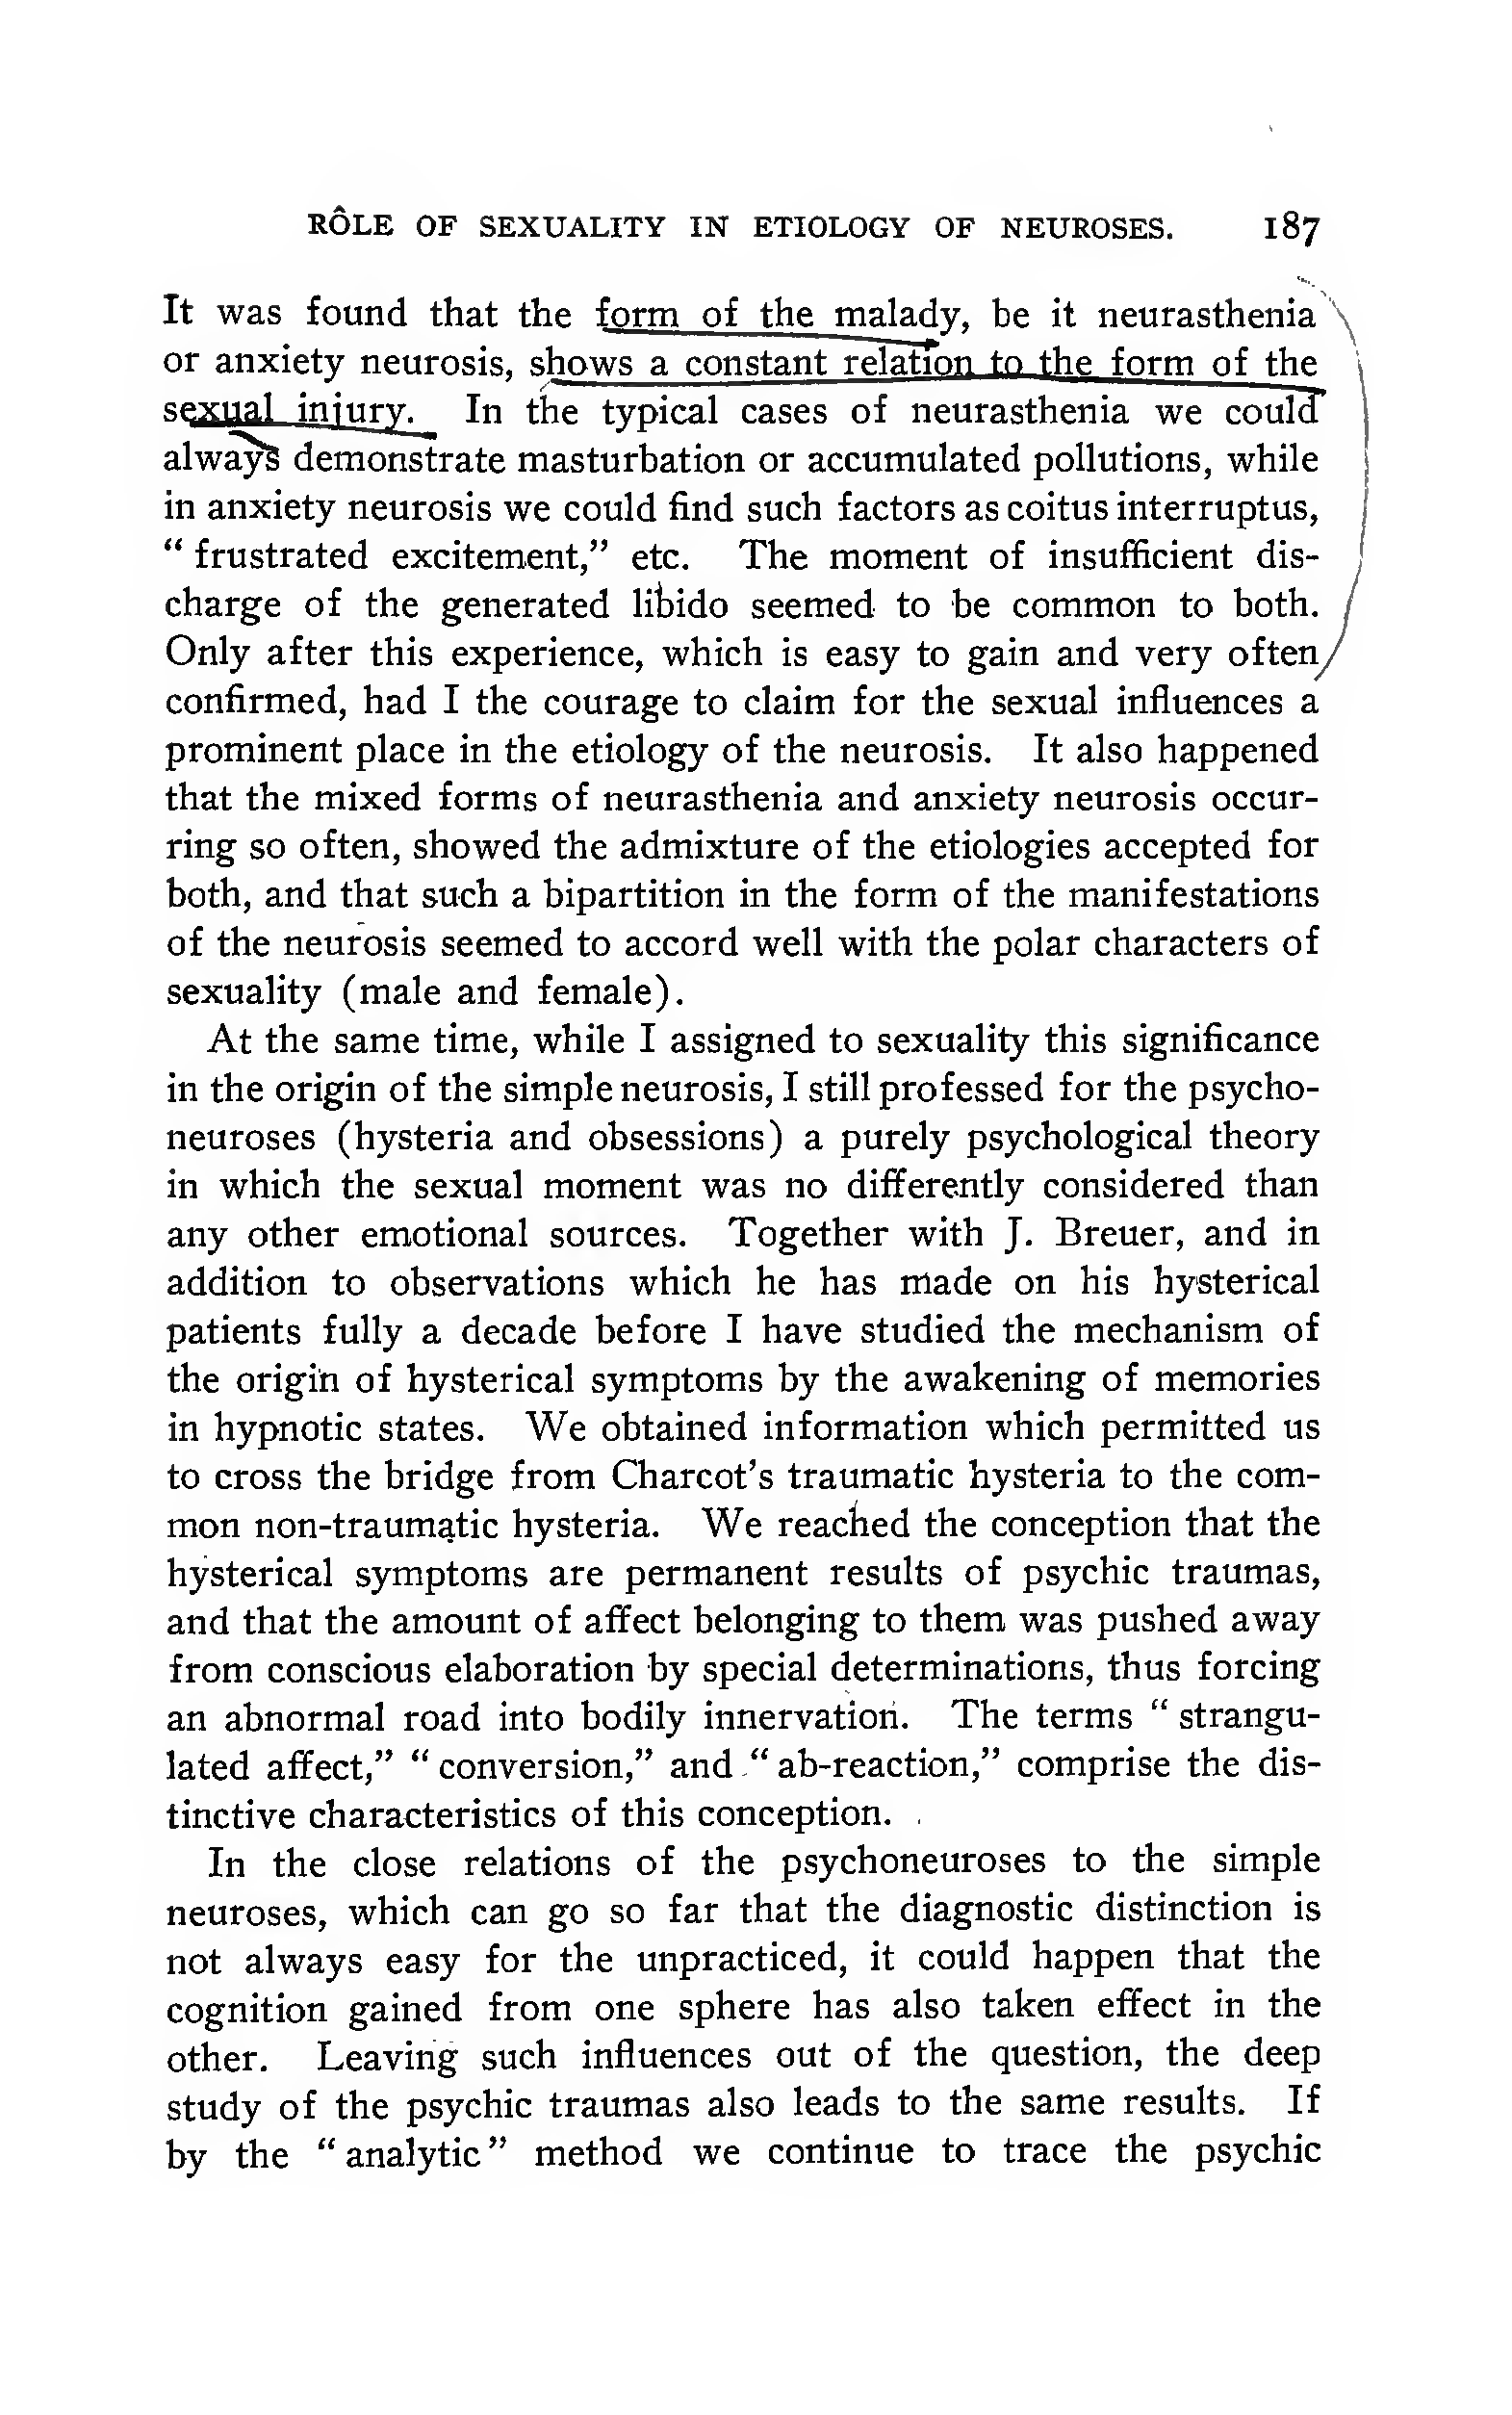 RÔLE OF SEXUALITY IN ETIOLOGY OF NEUROSES. 187
It was found that the form of the malady, be it neurasthenia
or anxiety neurosis, shows a constant relation to the form of the
sexual injury. In the typical cases of neurasthenia we could
always demonstrate masturbation or accumulated pollutions, while
in anxiety neurosis we could find such factors as coitus interruptus,
“ frustrated excitement,” etc. The moment of insufficient dis-
charge of the generated libido seemed to be common to both.
Only after this experience, which is easy to gain and very often
confirmed, had I the courage to claim for the sexual influences a
prominent place in the etiology of the neurosis. It also happened
that the mixed forms of neurasthenia and anxiety neurosis occur-
ring so often, showed the admixture of the etiologies accepted for
both, and that such a bipartition in the form of the manifestations
of the neurosis seemed to accord well with the polar characters of
sexuality (male and female).
At the same time, while I assigned to sexuality this significance
in the origin of the simple neurosis, I still professed for the psycho-
neuroses (hysteria and obsessions) a purely psychological theory
in which the sexual moment was no differently considered than
any other emotional sources. Together with J. Breuer, and in
addition to observations which he has made on his hysterical
patients fully a decade before I have studied the mechanism of
the origin of hysterical symptoms by the awakening of memories
in hypnotic states. We obtained information which permitted us
to cross the bridge from Charcot’s traumatic hysteria to the com-
mon non-traumatic hysteria. We reached the conception that the
hysterical symptoms are permanent results of psychic traumas,
and that the amount of affect belonging to them was pushed away
from conscious elaboration by special determinations, thus forcing
an abnormal road into bodily innervation. The terms “ strangu-
lated affect,” “ conversion,” and “ ab-reaction,” comprise the dis-
tinctive characteristics of this conception.
In the close relations of the psychoneuroses to the simple
neuroses, which can go so far that the diagnostic distinction is
not always easy for the unpracticed, it could happen that the
cognition gained from one sphere has also taken effect in the
other. Leaving such influences out of the question, the deep
study of the psychic traumas also leads to the same results. If
by the “ analytic ” method we continue to trace the psychic